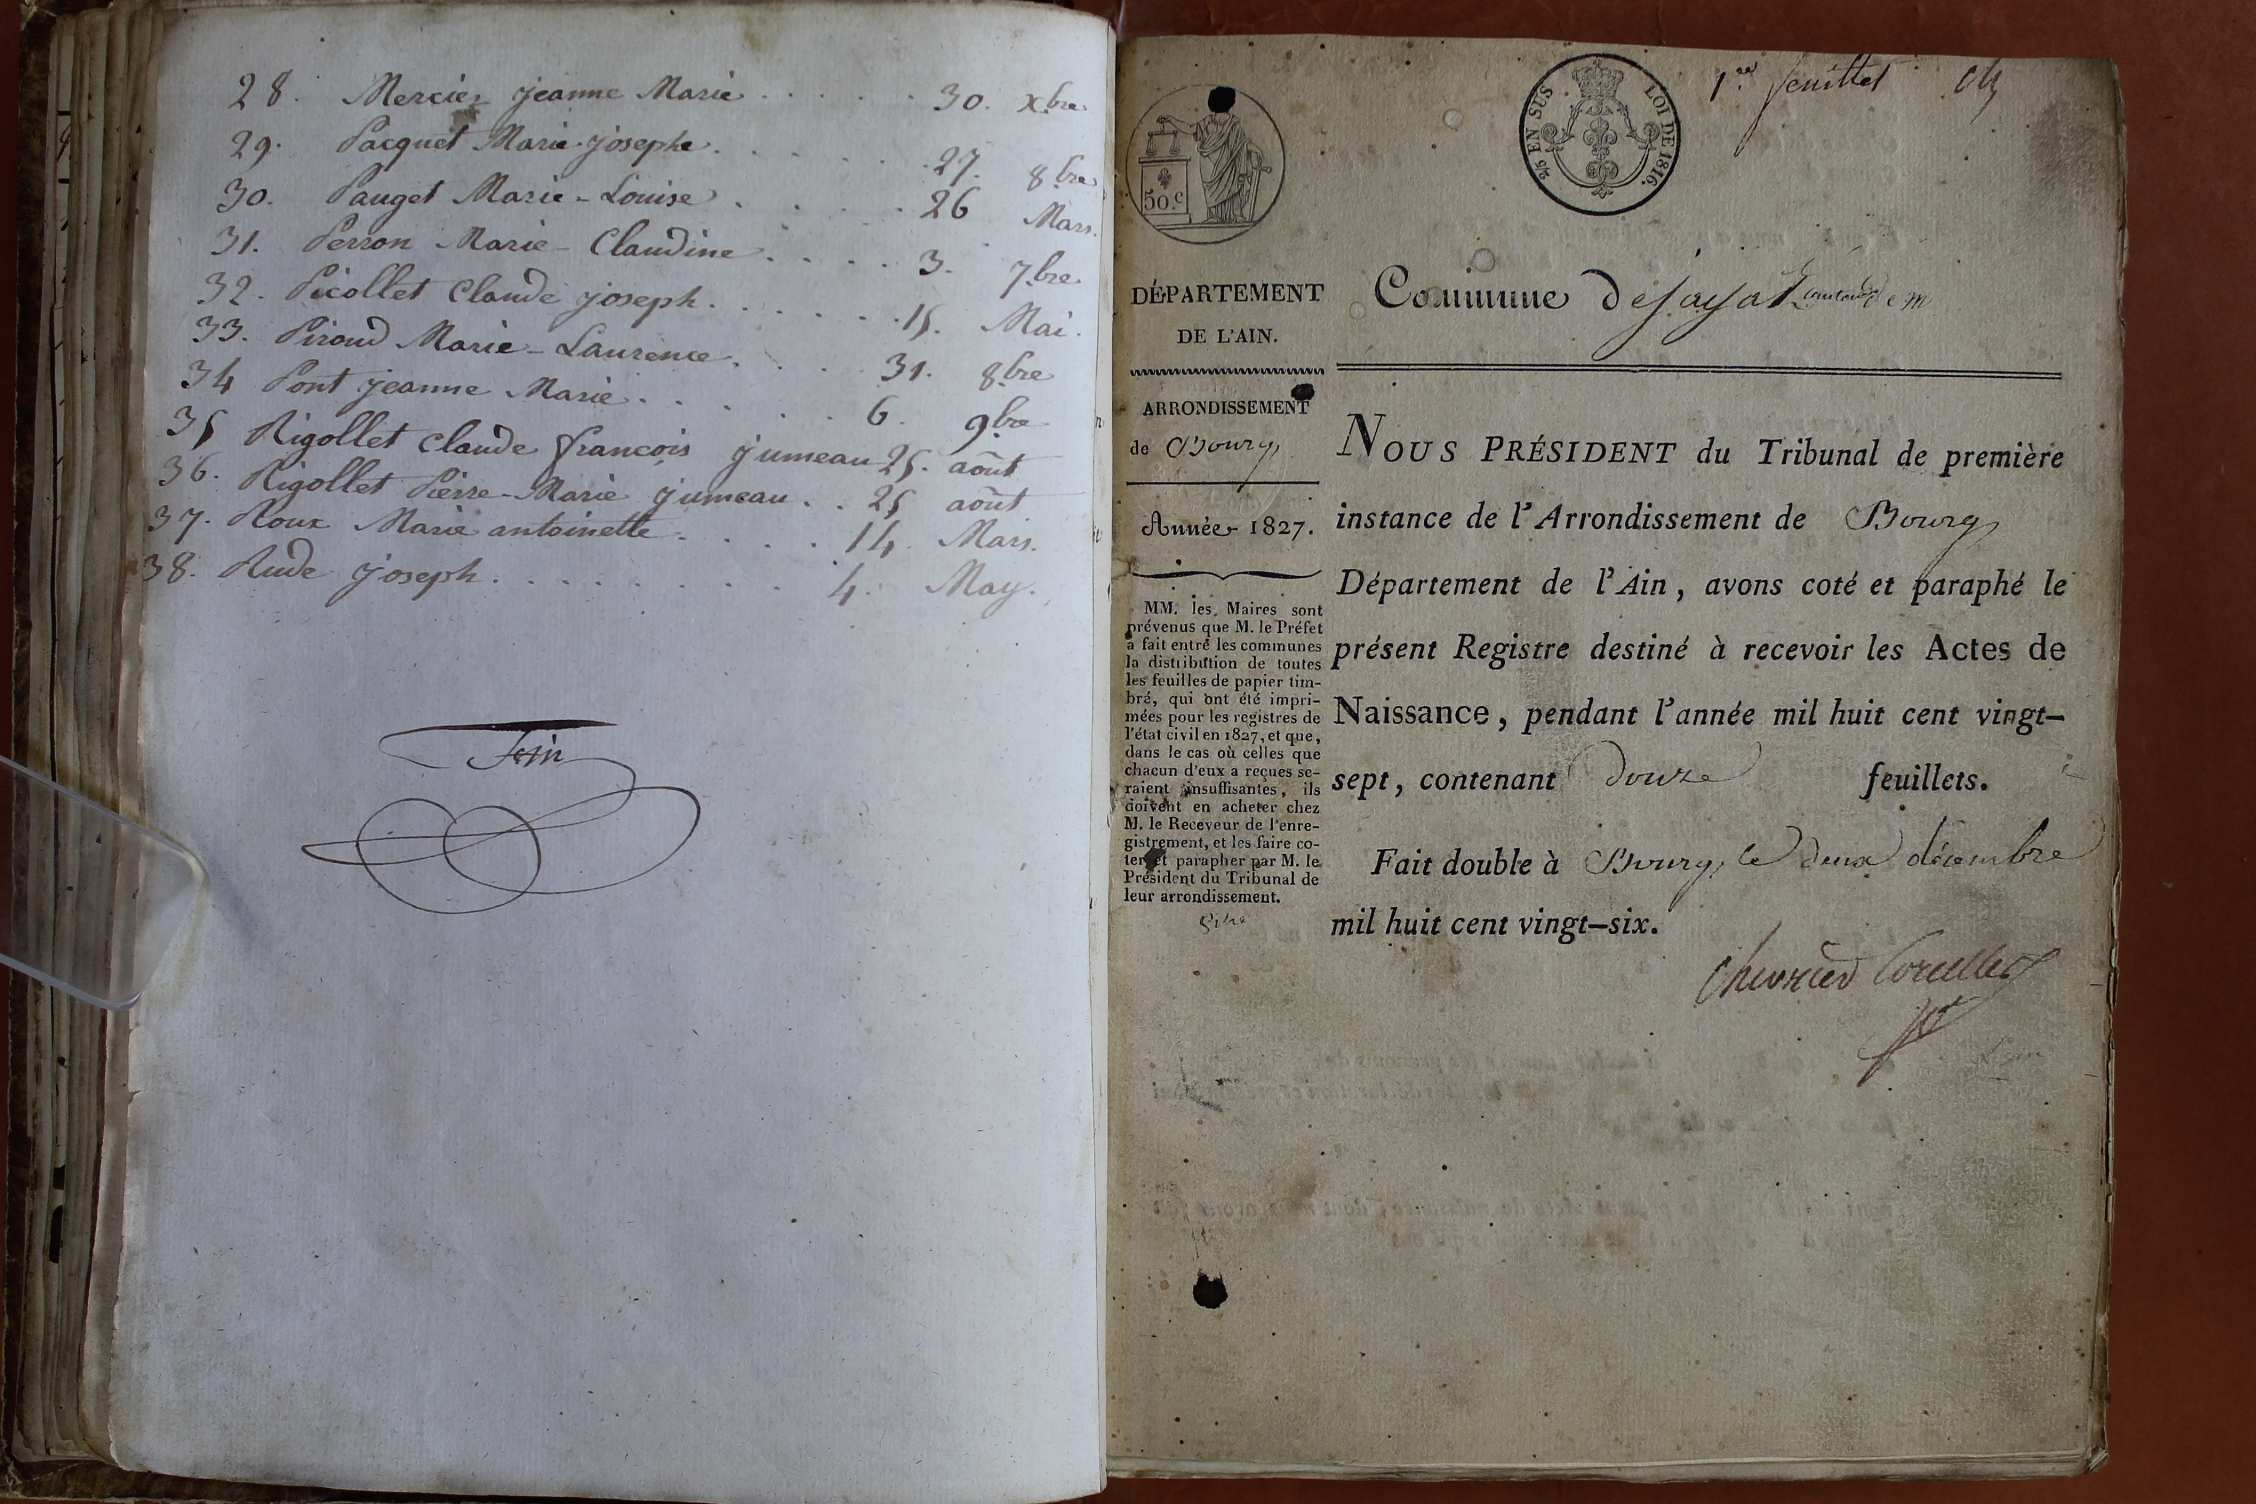 28. Mercier jeanne Marie . . . . . 30. xbre
29. Pacquet Marie josephe . . . . . . 27. 8bre
30. Pauget Marie-Louise . . . . 26 Mars.
31. Perron Marie-Claudine . . . . 3. 7bre
32. Picollet Claude joseph . . . . . . 15. Mai.
33. Piroud Marie-Laurence . . . . 31. 8bre
34 Pont jeanne Marie . . . . . . 6. 9bre
35 Rigollet Claude françois jumeau 25. aôut
36. Rigollet Pierre-Marie jumeau . . 25 aôut
37. Roux Marie antoinette . . . . 14. Mars.
38. Rude joseph . . . . . . . . . 4. May.
Fin
1er feuillet
2/5 EN SUS LOI DE 1816.
50.c
DÉPARTEMENT
DE L'AIN.
ARRONDISSEMENT
de Bourg
Année 1827.
MM. les Maires sont
prévenus que M. le Préfet
a fait entre les communes
la distribution de toutes
les feuilles de papier tim-
bré, qui ont été impri-
mées pour les registres de
l'état civil en 1827, et que,
dans le cas où celles que
chacun d'eux a reçues se-
raient insuffisantes, ils
doivent en acheter chez
M. le Receveur de l'enre-
gistrement, et les faire co-
ter et parapher par M. le
Président du Tribunal de
leur arrondissement.
Commune de jayat
NOUS PRÉSIDENT du Tribunal de première
instance de l'Arrondissement de Bourg
Département de l'Ain, avons coté et paraphé le
présent Registre destiné à recevoir les Actes de
Naissance, pendant l'année mil huit cent vingt-
sept, contenant douze feuillets.
Fait double à Bourg, le deux décembre
mil huit cent vingt-six.